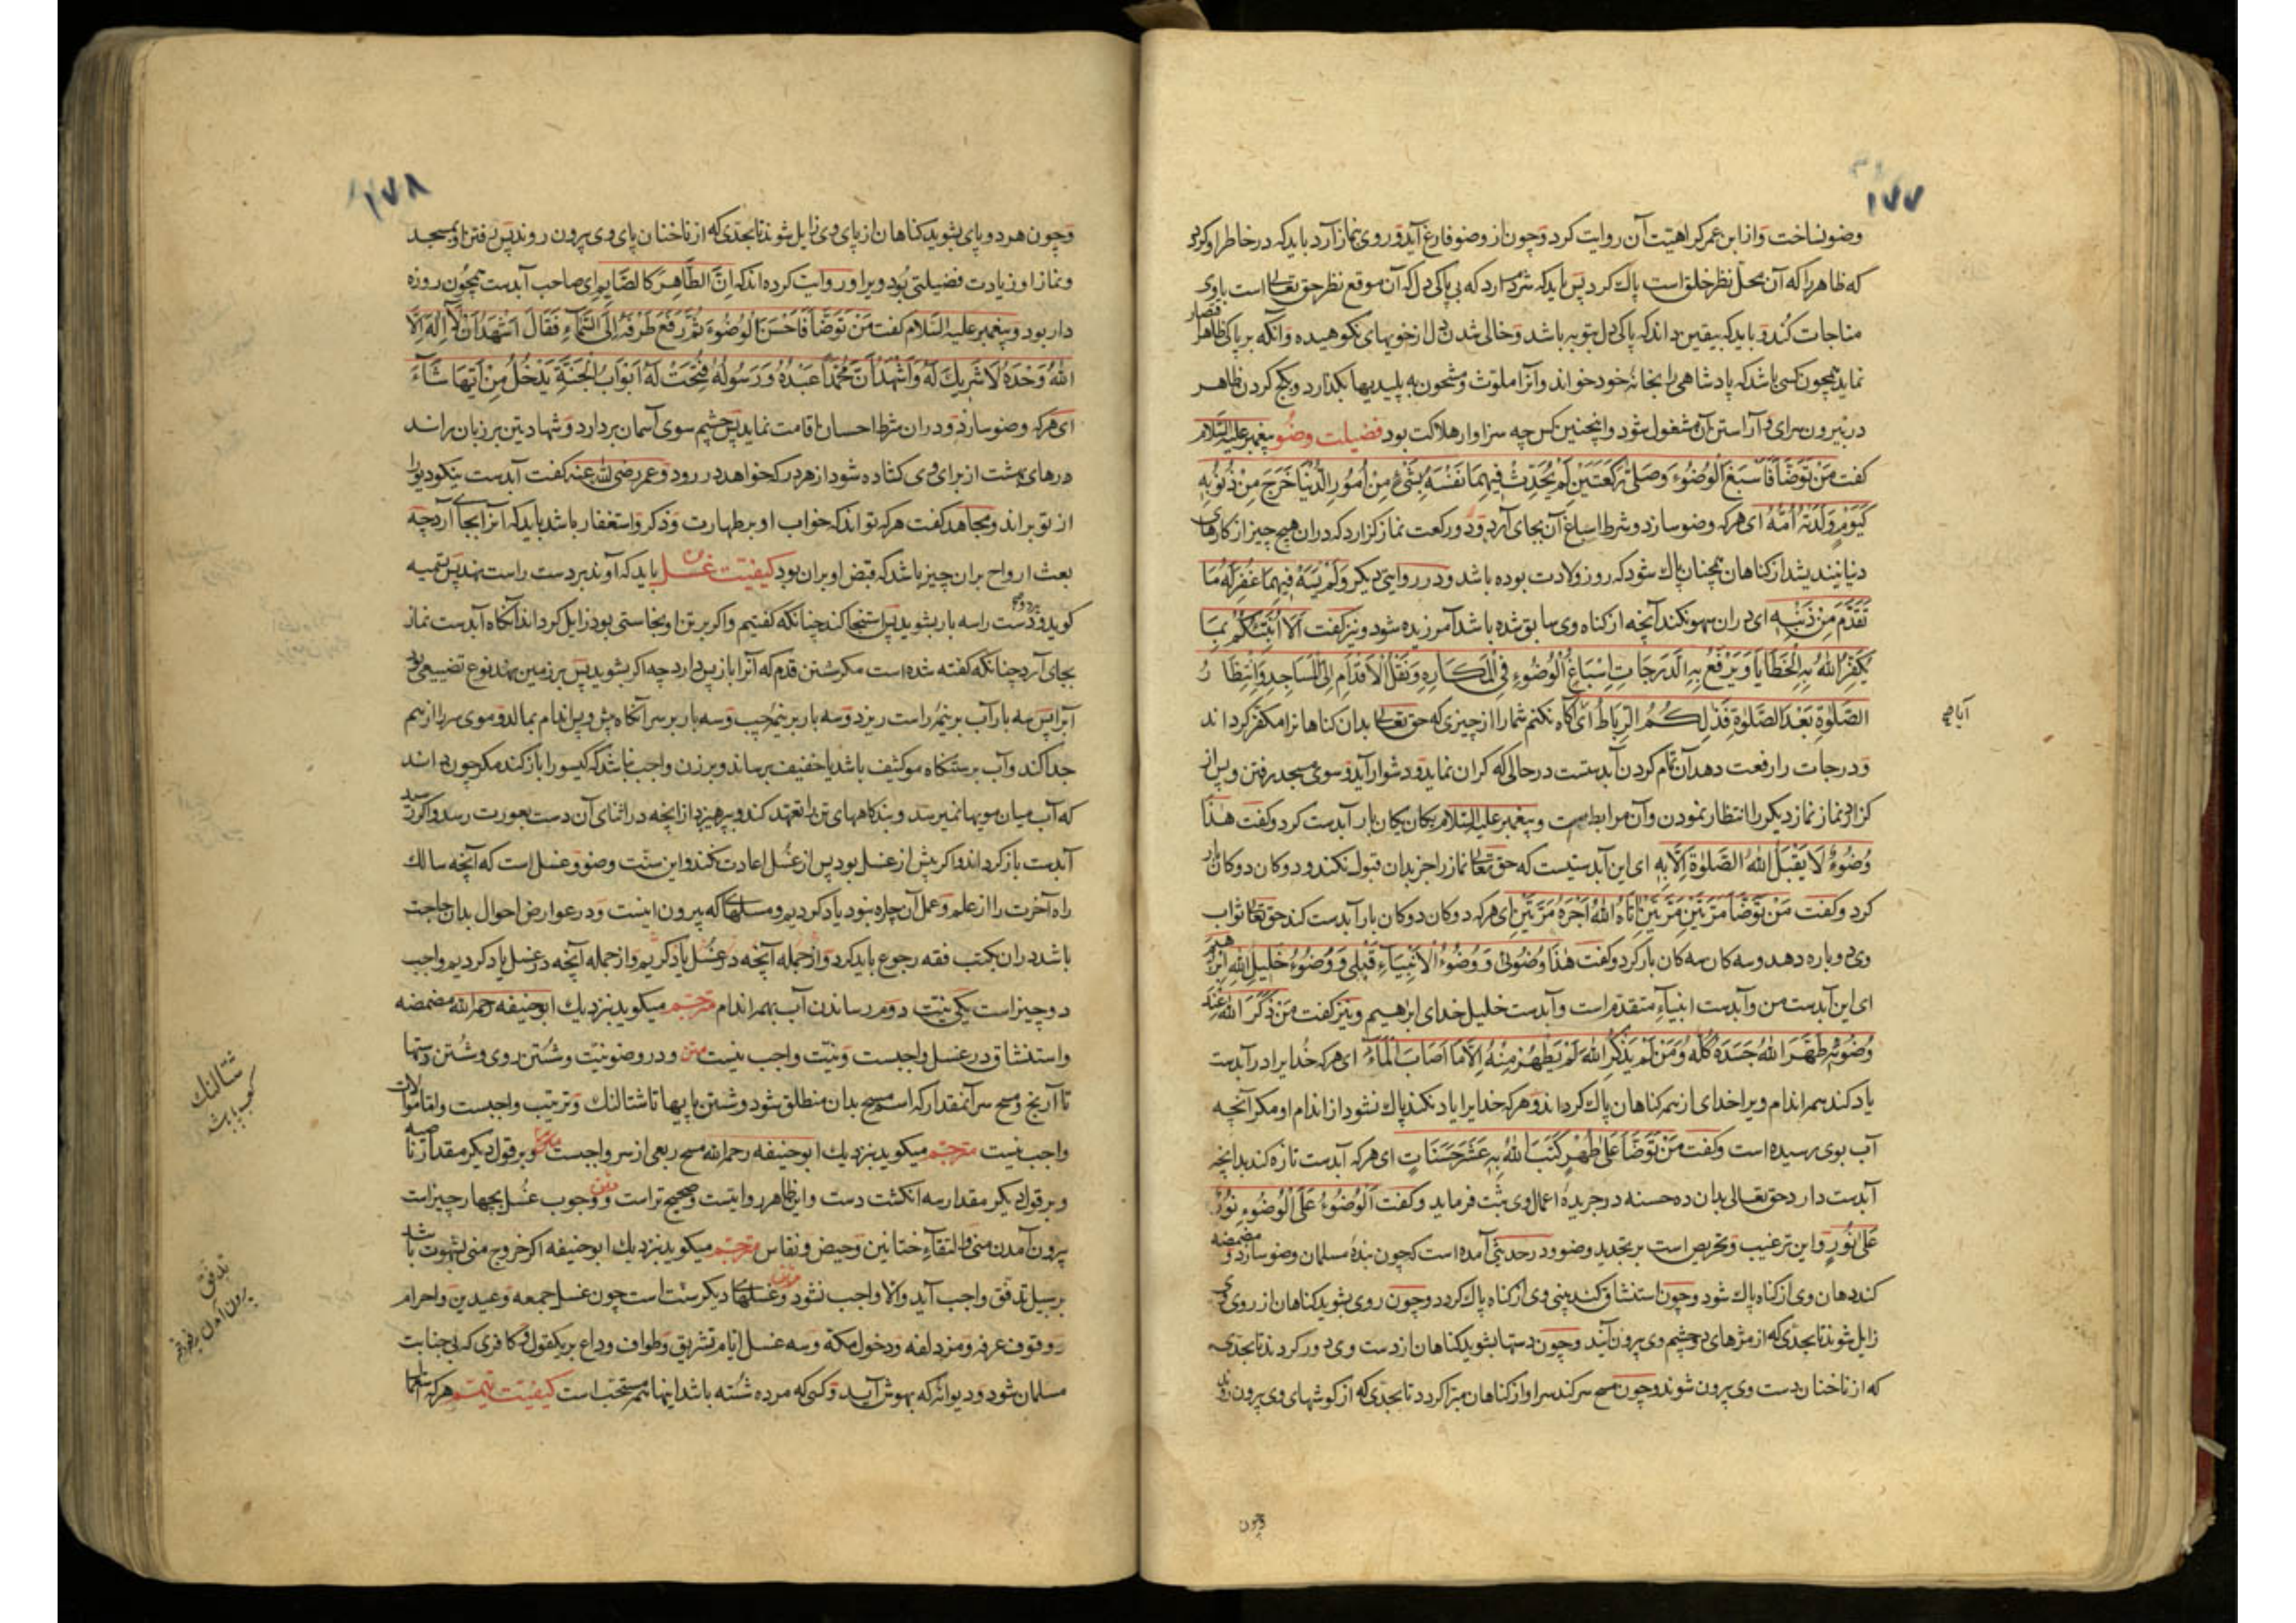 ۱۷۷
وضو نساخت و از ابن عمر کراهیت آن روایت کرد و چون از وضو فارغ آید و روی نماز آرد باید که در خاطر او گردد
که ظاهر را که آن محل نظر خلق است پاک کرد پس باید که شرم دارد که بی پاکی دل که آن موقع نظر حق تعالی است با وی
مناجات کند و باید که بیقین داند که پاکی دل بتوبه باشد و خالی شدن دل از خویهای نکوهیده و آنکه بر پاکی ظاهر اقتصار
نماید همچون کسی باشد که پادشاهی را بخانهٔ خود خواند و آنرا ملوث و مشحون به پلیدیها بگذارد و بگچ کردن ظاهر
در بیرون سرای و آراستن آن مشغول شود و اینچنین کس چه سزاوار هلاکت بود فضیلت وضو پیغمبر علیه السلام
گفت مَنْ تَوَضَّأَ فَاَسْبَغَ الْوُضُوءَ وَصَلّٰی رَکْعَتَیْنِ لَمْ یُحَدِّثْ فِیهِمَا نَفْسَهُ بِشَیْءٍ مِنْ اُمُورِ الدُّنْیَا خَرَجَ مِنْ ذُنُوبِهِ
کَیَوْمٍ وَلَدَتْهُ اُمُّهُ ای هر که وضو سازد و شرط اسباغ آن بجای آرد و دو رکعت نماز گزارد که دران هیچ چیز از کارهای
دنیا نیندیشد از گناهان همچنان پاک شود که روز ولادت بوده باشد و در روایتی دیگر وَلَمْ یَسْهُ فِیهِمَا غُفِرَ لَهُ مَا
تَقَدَّمَ مِنْ ذَنْبِهِ ای دران سهو نکند آنچه از گناه وی سابق شده باشد آمرزیده شود و نیز گفت اَلَا اُنَبِّئُکُمْ بِمَا
یُکَفِّرُ اللّٰهُ بِهِ الْخَطَایَا وَیَرْفَعُ بِهِ الدَّرَجَاتِ اِسْبَاغُ الْوُضُوءِ فِی الْمَکَارِهِ وَنَقْلُ الْاَقْدَامِ اِلَی الْمَسَاجِدِ وَانْتِظَارُ
الصَّلٰوةِ بَعْدَ الصَّلٰوةِ فَذٰلِکُمُ الرِّبَاطُ ای آگاه نکنم شما را از چیزی که حق تعالی بدان گناهانرا مکفر گرداند
و درجات را رفعت دهد آن تمام کردن آبدستست در حالی که گران نماید و دشوار آید و سوی مسجد رفتن و پس از
گزارد نماز نماز دیگر را انتظار نمودن و آن مرابطست و پیغمبر علیه السلام یکان یکان بار آبدست کرد و گفت هٰذَا
وُضُوءٌ لَا یَقْبَلُ اللّٰهُ الصَّلٰوةَ اِلَّا بِهِ ای این آبدستیست که حق تعالی نماز را جز بدان قبول نکند و دوکان دوکان بار
کرد و گفت مَنْ تَوَضَّأَ مَرَّتَیْنِ مَرَّتَیْنِ اٰتَاهُ اللّٰهُ اَجْرَهُ مَرَّتَیْنِ ای هر که دوکان دوکان بار آبدست کند حق تعالی ثواب
وی دوباره دهد و سه کان سه کان بار کرد و گفت هٰذَا وُضُوئِی وَوُضُوءُ الْاَنْبِیَاءِ قَبْلِی وَوُضُوءُ خَلِیلِ اللّٰهِ اِبْرٰهِیمَ
ای این آبدست من و آبدست انبیاء متقدم است و آبدست خلیل خدای ابراهیم و نیز گفت مَنْ ذَکَرَ اللّٰهَ عِنْدَ
وُضُوئِهِ طَهَّرَ اللّٰهُ جَسَدَهُ کُلَّهُ وَمَنْ لَمْ یَذْکُرِ اللّٰهَ لَمْ یَطْهُرْ مِنْهُ اِلَّا مَا اَصَابَ الْمَاءُ ای هر که خدایرا در آبدست
یاد کند همه اندام ویرا خدای از همه گناهان پاک گرداند و هر که خدایرا یاد نکند پاک نشود از اندام او مگر آنچه
آب بوی رسیده است و گفت مَنْ تَوَضَّأَ عَلٰی طُهْرٍ کَتَبَ اللّٰهُ بِهِ عَشَرَ حَسَنَاتٍ ای هر که آبدست تازه کند بدانچه
آبدست دارد حق تعالی بدان ده حسنه در جریدهٔ اعمال وی ثبت فرماید و گفت اَلْوُضُوءُ عَلَی الْوُضُوءِ نُورٌ
عَلٰی نُورٍ و این ترغیب و تحریص است بر تجدید وضو و در حدیثی آمده است که چون بندهٔ مسلمان وضو سازد و مضمضه
کند دهان وی از گناه پاک شود و چون استنشاق کند بینی وی از گناه پاک گردد و چون روی بشوید گناهان از روی وی
زایل شوند تا بحدی که از مژهای دو چشم وی بیرون آیند و چون دستها بشوید گناهان از دست وی دور گردند تا بحدی
که از ناخنان دست وی بیرون شوند و چون مسح سر کند سر او از گناهان مبرا گردد تا بحدی که از گوشهای وی بیرون روند
و چون
۱۷۸
و چون هر دو پای بشوید گناهان از پای وی زایل شوند تا بحدی که از ناخنان پای وی بیرون روند پس رفتن او بمسجد
و نماز او زیادت فضیلتی بود ویرا و روایت کرده اند که اِنَّ الطَّاهِرَ کَالصَّایِمِ ای صاحب آبدست همچون روزه
دار بود و پیغمبر علیه السلام گفت مَنْ تَوَضَّأَ فَاَحْسَنَ الْوُضُوءَ ثُمَّ رَفَعَ طَرْفَهُ اِلَی السَّمَاءِ فَقَالَ اَشْهَدُ اَنْ لَا اِلٰهَ اِلَّا
اللّٰهُ وَحْدَهُ لَا شَرِیكَ لَهُ وَاَشْهَدُ اَنَّ مُحَمَّدًا عَبْدُهُ وَرَسُولُهُ فُتِحَتْ لَهُ اَبْوَابُ الْجَنَّةِ یَدْخُلُ مِنْ اَیِّهَا شَآءَ
ای هر که وضو سازد و دران شرط احسان اقامت نماید پس چشم سوی آسمان بردارد و شهادتین بر زبان راند
درهای بهشت از برای وی گشاده شود از هر در که خواهد در رود و عمر رضی الله عنه گفت آبدست نیکو دیو را
از تو براند و مجاهد گفت هر که تواند که خواب او بر طهارت و ذکر و استغفار باشد باید که آنرا بجای آرد چه
بعث ارواح بران چیز باشد که قبض او بران بود کیفیت غسل باید که آوند بر دست راست نهد پس تسمیه
گوید و دست را سه بار بشوید پس استنجا کند چنانکه گفتیم و اگر بر تن او نجاستی بود زایل گرداند آنگاه آبدست نماز
بجای آرد چنانکه گفته شده است مگر شستن قدم که آنرا باز پس دارد چه اگر بشوید پس بر زمین نهد نوع تضییعی بود
آنرا پس سه بار آب بر نیمهٔ راست ریزد و سه بار بر نیمهٔ چپ و سه بار بر سر آنگاه پیش و پس اندام بمالد و موی سر را از هم
جدا کند و آب برستنگاه مو کثیف باشد یا خفیف برساند و بر زن واجب نباشد که گیسو را باز کند مگر چون داند
که آب میان مویها نمیرسد و بندکاههای تن را تعهد کند و بپرهیزد از آنچه در اثنای آن دست بعورت رسد و اگر رسد
آبدست باز گرداند و اگر پیش از غسل بود پس از غسل اعادت نکند و این سنت وضو و غسل است که آنچه سالك
راه آخرت را از علم و عمل آن چاره نبود یاد کردیم و مسلهای که بیرون اینست و در عوارض احوال بدان حاجت
باشد دران بکتب فقه رجوع باید کرد و از جمله آنچه در غسل یاد کردیم و از جمله آنچه در غسل یاد کردیم واجب
دو چیز است یکی نیت دوم رساندن آب بهمه اندام مترجم میگوید نزدیك ابو حنیفه رحمه الله مضمضه
و استنشاق در غسل واجبست و نیت واجب نیست متن و در وضو نیت و شستن روی و شستن دستها
تا آرنج و مسح سر آنمقدار که اسم مسح بدان منطلق شود و شستن پایها تا شتالنك و ترتیب واجبست و اما موالات
واجب نیست مترجم میگوید نزدیك ابو حنیفه رحمه الله مسح ربعی از سر واجبست و بر قول دیگر مقدار ناصیه
و بر قول دیگر مقدار سه انگشت دست و این ظاهر روایتست و صحیح تر است متن و وجوب غسل بچهار چیز است
بیرون آمدن منی و التقاء ختانین و حیض و نفاس مترجم میگوید نزدیك ابو حنیفه اگر خروج منی بشهوت باشد
بر سبیل تدفق واجب آید و الا واجب نشود متن و غسلهای دیگر سنت است چون غسل جمعه و عیدین و احرام
و وقوف عرفه و مزدلفه و دخول مکه و سه غسل ایام تشریق و طواف وداع بریکقول و کافری که بی جنابت
مسلمان شود و دیوانه که بهوش آید و کسی که مرده شسته باشد اینها هم مستحب است کیفیت تیمم هر که استعمال
شتالنك
تدفق